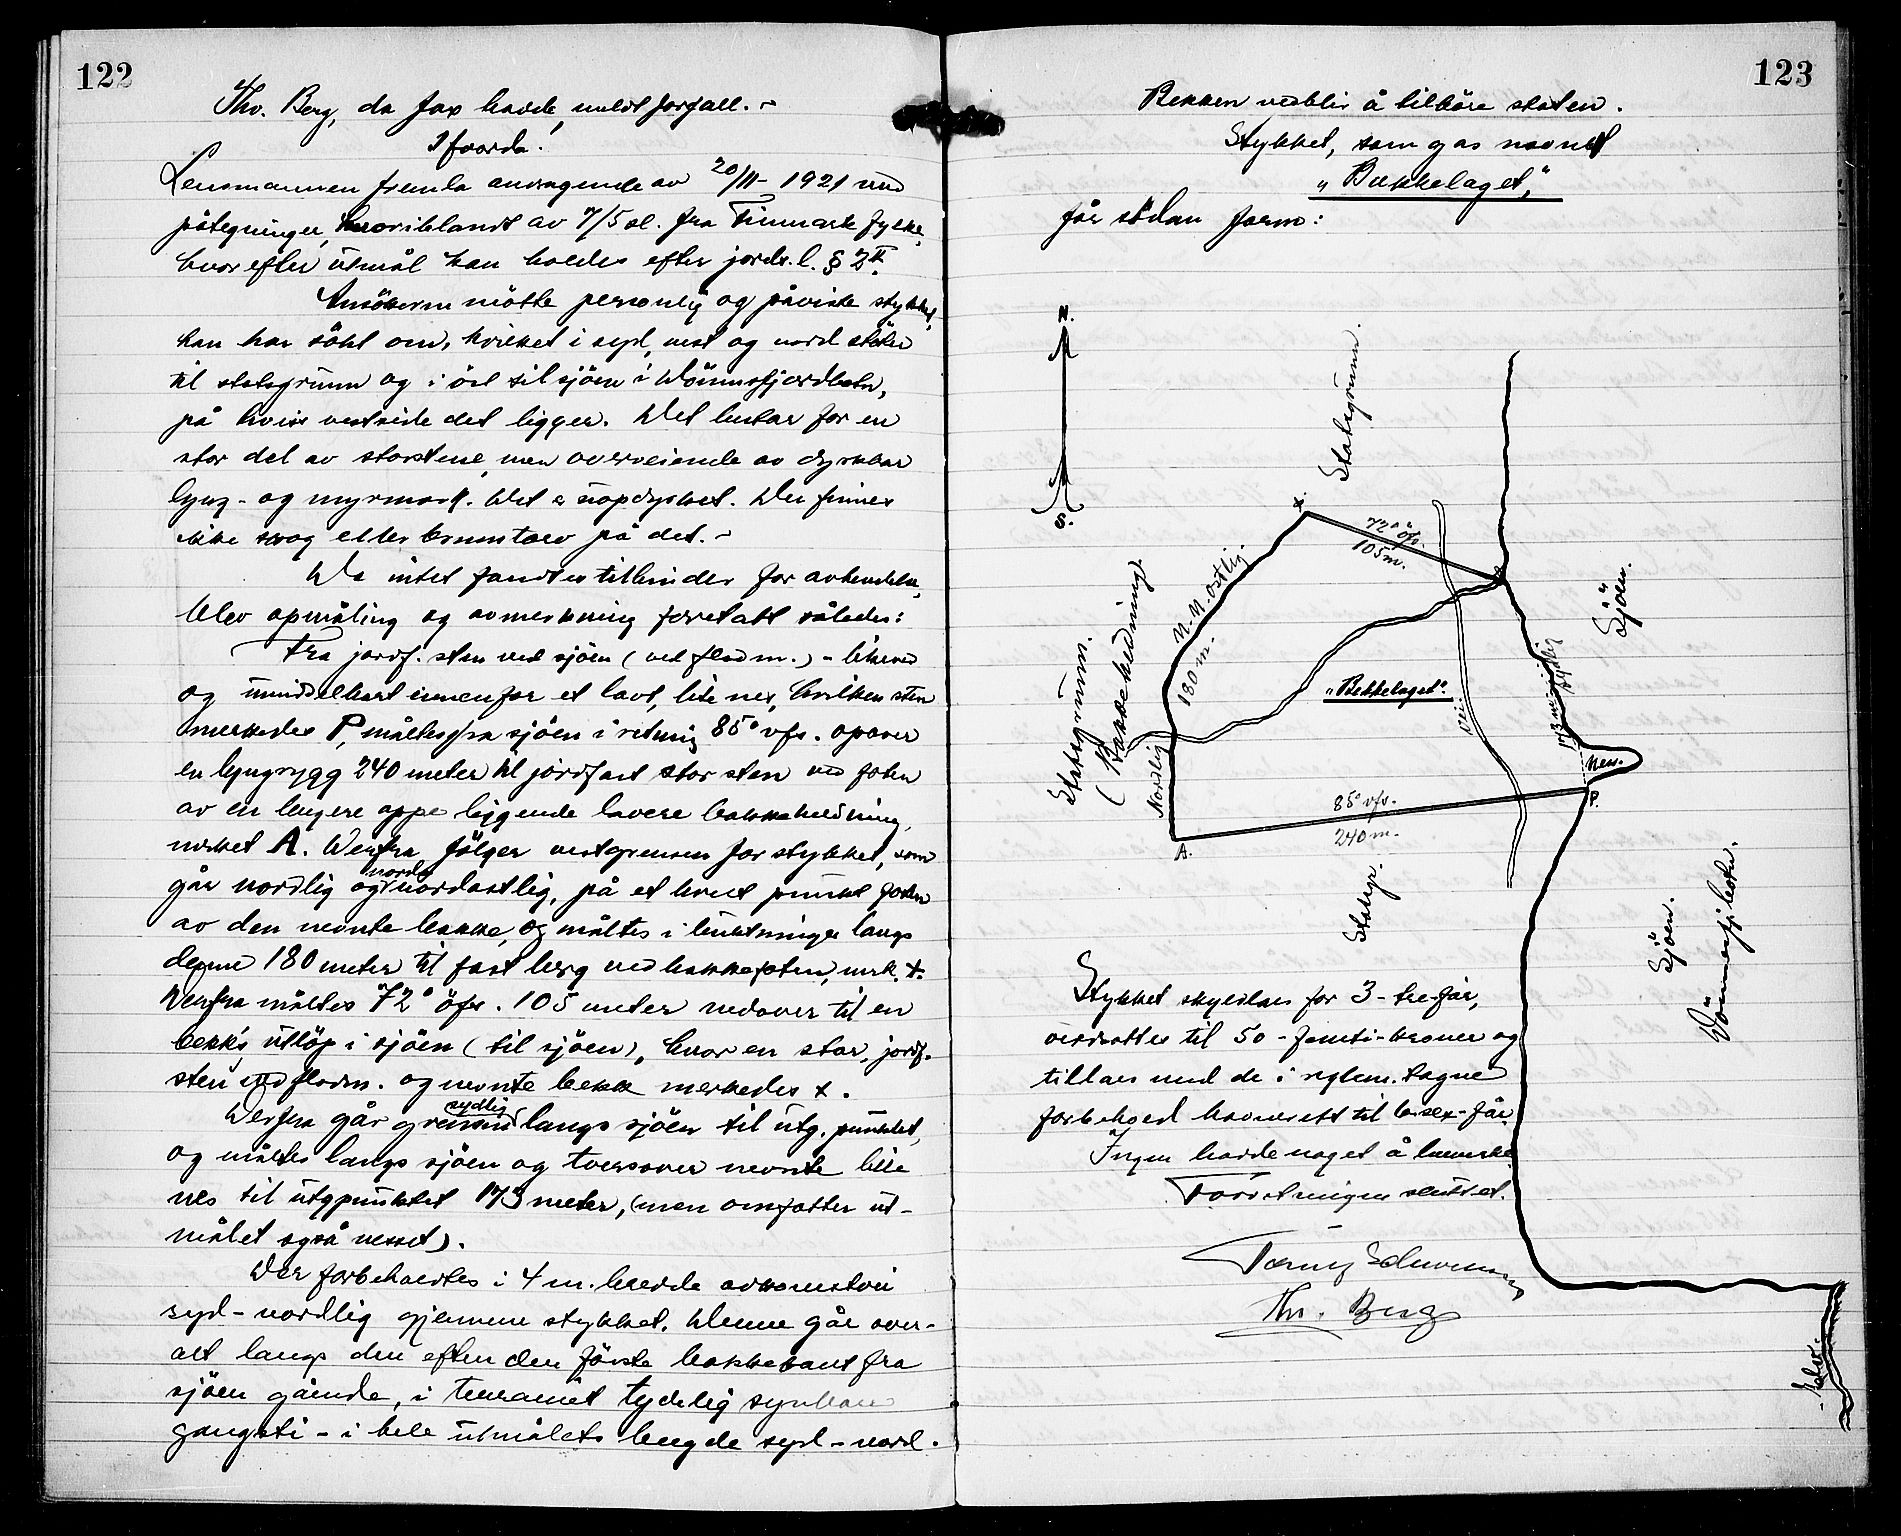 122
Thv. Berg, da Jax havde meldt forfall. -
Lensmannen fremla andragende av 20/11 - 1921 med
påtegninger, hvoriblandt av 7/5 sl. fra Finmark fylke,
hvorefter utmål kan holdes efter jords.l. § 2II.
Ansökeren mötte personlig og påviste stykket,
han har sökt om, hvilket i syd, vest og nord stöter
til statsgrunn og i öst til sjöen i Dönnesfjordbotn,
på hvis vestside det ligger. Det bestar for en
stor del av storstene, men overveiende av dyrkbar
lyng- og myrmark. Det er uopdyrket. Der finnes
ikke skog eller brenntorv på det. -
Da intet fandtes til hinder for avhendelse,
blev opmåling og avmerkning foretatt således:
Fra jordf. sten ved sjöen (ved flodm.) - likeved
og umiddelbart innenfor et lavt, lite nes, hvilken sten
merkedes P, måltes fra sjöen i retning 85° vfs. opover
en lyngrygg 240 meter til jordfast stor sten ved foten
av en lengere oppe liggende lavere bakkeheldning,
merket A. Derfra fölger vestgrensen for stykket, som
går nordlig og nord-nordostlig, på et hvert punkt foten
av den nevnte bakke, og måltes i buktninger langs
denne 180 meter til fast berg ved bakkefoten, merk. +.
Derfra måltes 72° öfs. 105 meter nedover til en
bekks utlöp i sjöen (til sjöen), hvor en stor, jordf.
sten ved flodm. og nevnte bekk merkedes +.
Derfra går grensen sydlig langs sjöen til utg. punktet,
og måltes langs sjöen og tversover nevnte lille
nes til utgpunktet 173 meter, (men omfatter ut-
målet også nesset).
Der forbeholdtes i 4 m. bredde adkomstvei
syd-nordlig gjennem stykket. Denne går over-
alt langs den efter den förste bakkekant fra
sjöen gående, i terrenget tydelig synbare
gangsti - i hele utmålets lengde syd-nord.
123
Bekken vedblir å tilhöre staten.
Stykket, som gas navnet
"Bekkelaget,"
får sådan form:
N.
S.
Statsgrunn.
72° öfs.
105 m.
N.N. ostlig
180 m.
Nordlig
Statsgrunn.
(Bakkeheldning)
"Bekkelaget".
Vei
173 m. sydlig
Sjöen.
Nes.
P.
85° vfs.
240 m.
A.
Statsgr.
Sjöen.
Dönnesfjbotn.
Elv.
Stykket skyldlaes for 3 - tre - får,
verdsattes til 50 - femti - kroner og
tillaes med de i reglem. tagne
forbehold havnerett til 6 - sex - får.
Ingen hadde noget å bemerke.
Forretningen sluttet.
Thv. Berg